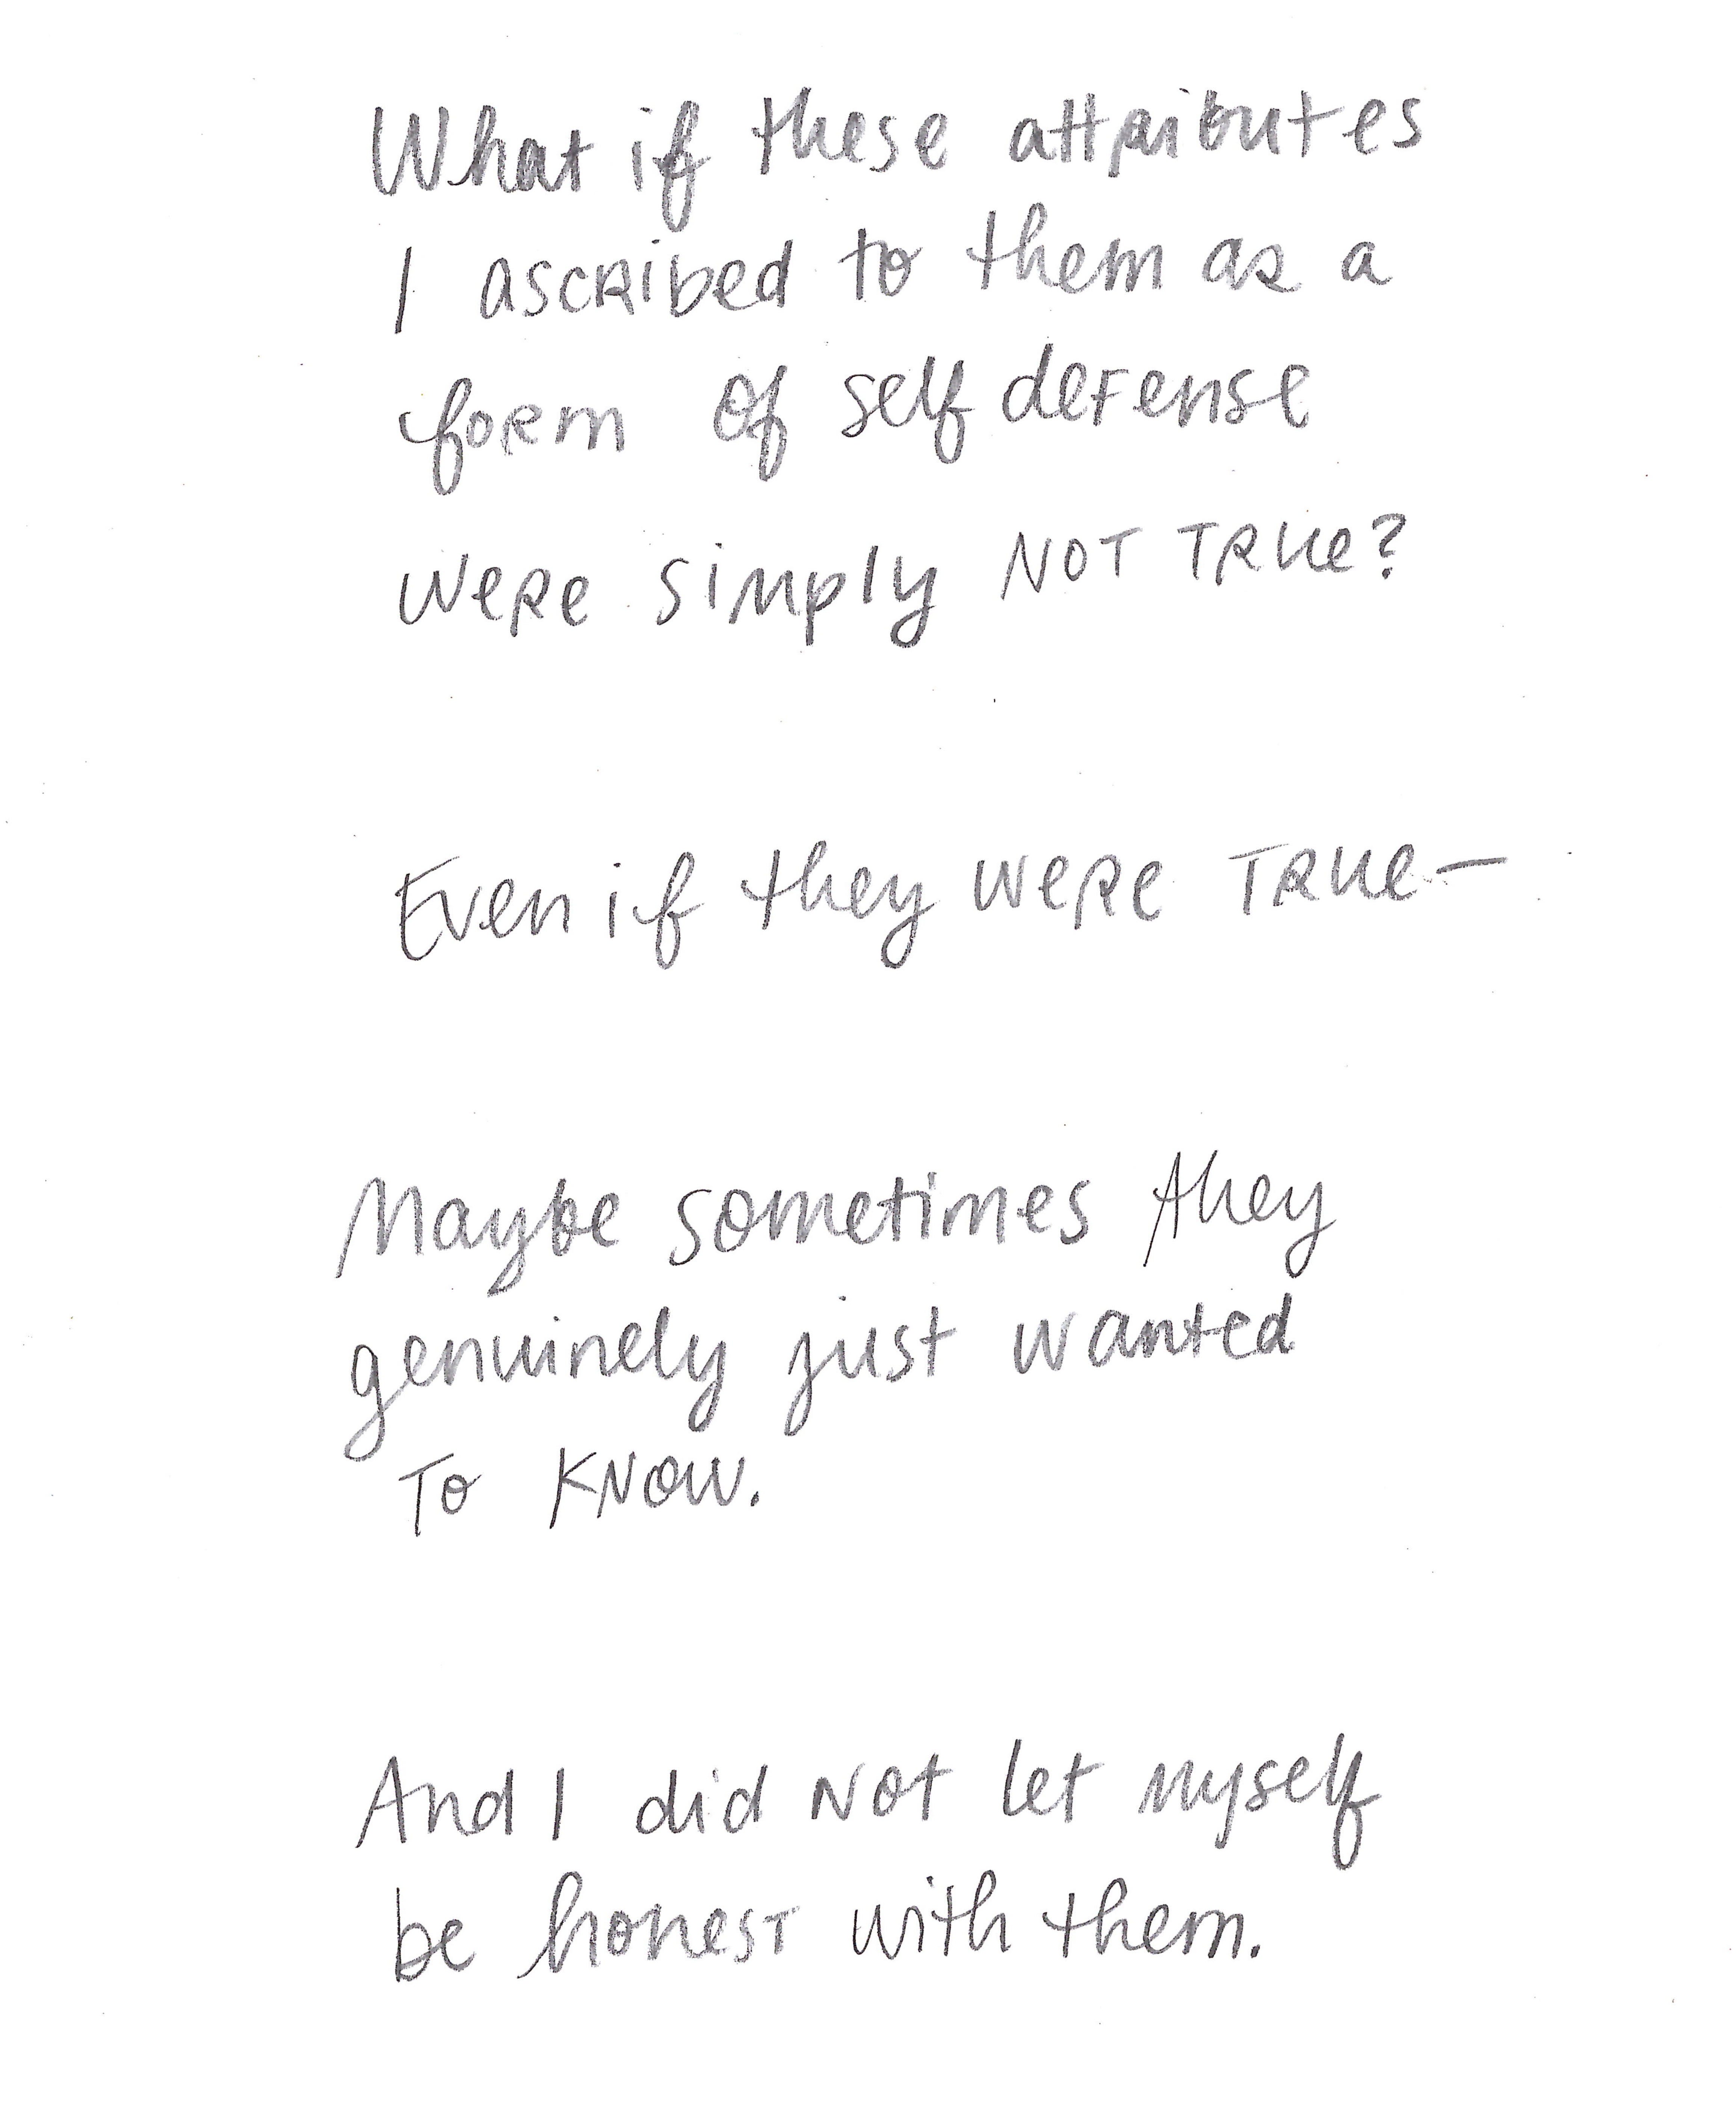 What if these attributes
I ascribed to them as a
form of self defense
were simply NOT TRUE?
Even if they were TRUE—
Maybe sometimes they
genuinely just wanted
To KNOW.
And I did Not let myself
be honest with them.